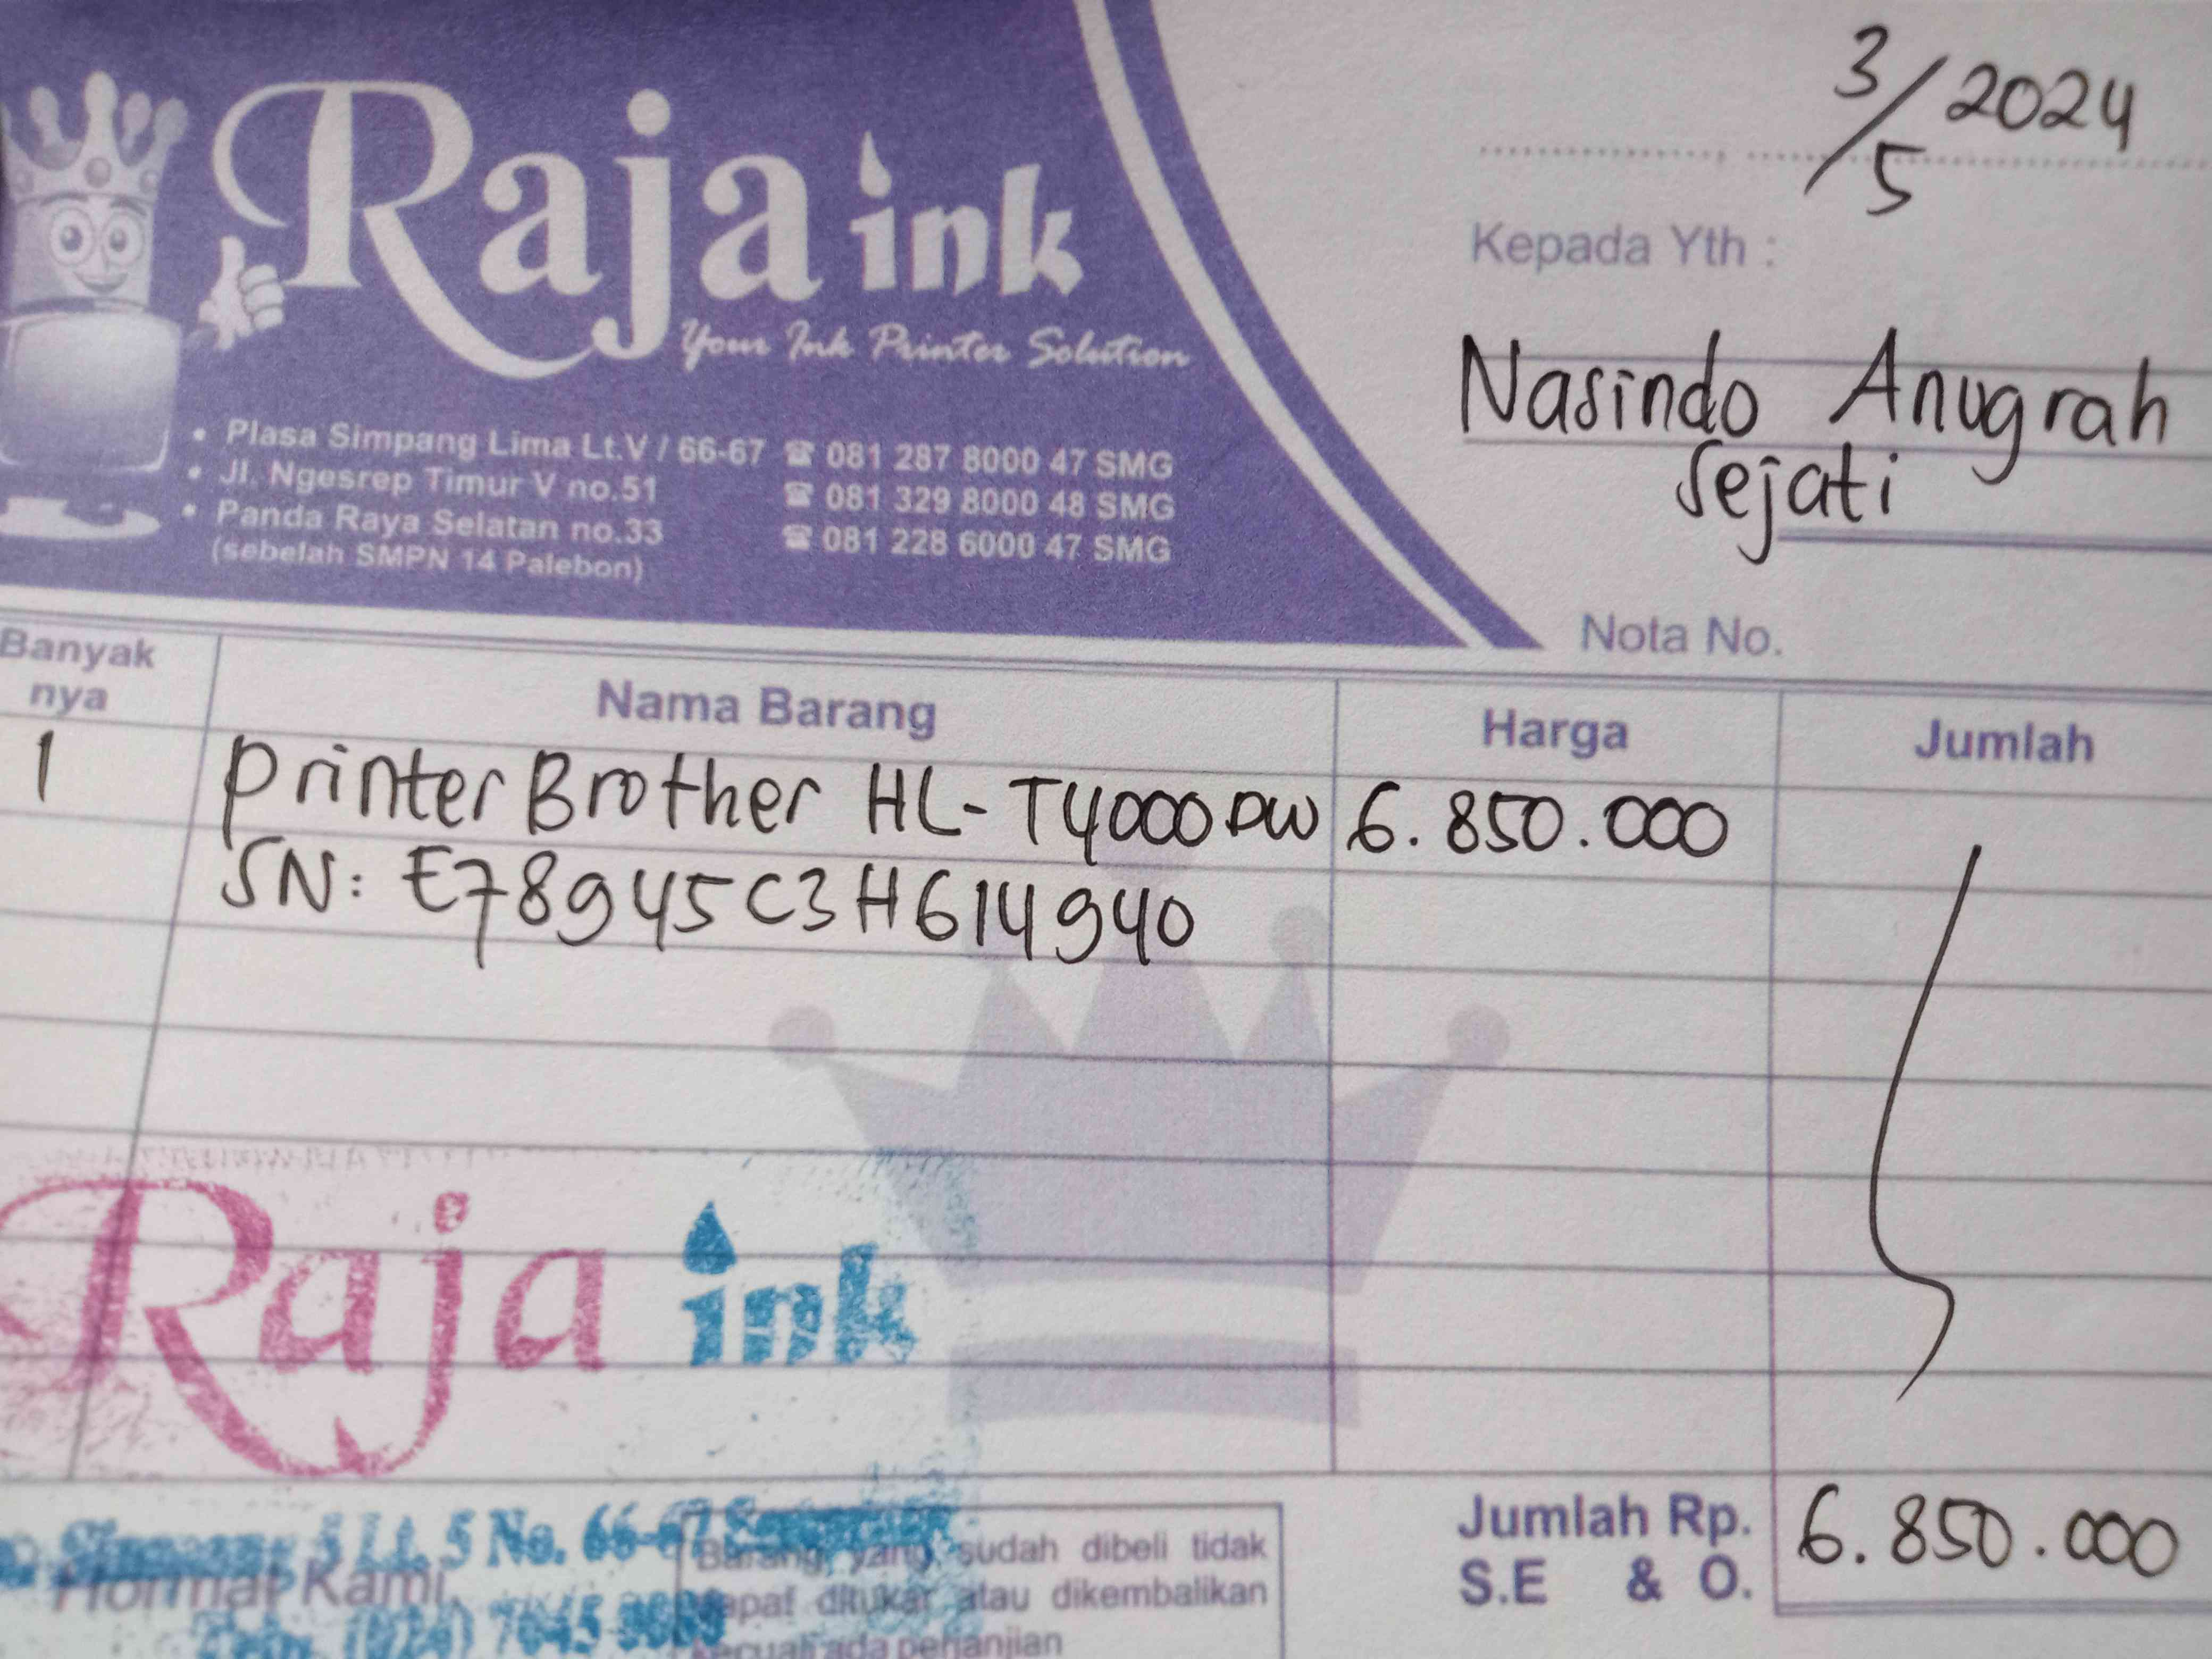 3/5 2024
Raja ink
Your Ink Printer Solution
• Plasa Simpang Lima Lt.V / 66-67 ☎ 081 287 8000 47 SMG
• Jl. Ngesrep Timur V no.51 ☎ 081 329 8000 48 SMG
• Panda Raya Selatan no.33 ☎ 081 228 6000 47 SMG
(sebelah SMPN 14 Palebon)
Kepada Yth :
Nasindo Anugrah
Sejati
Nota No.
Banyak
nya
Nama Barang Harga Jumlah
1 Printer Brother HL-T4000DW 6.850.000
SN: E78945C3H614940
Raja ink
5 Lt. 5 No. 66-67
Hormat Kami,
Telp. (024) 7645
Barang yang sudah dibeli tidak
dapat ditukar atau dikembalikan
kecuali ada perjanjian
Jumlah Rp. 6.850.000
S.E & O.